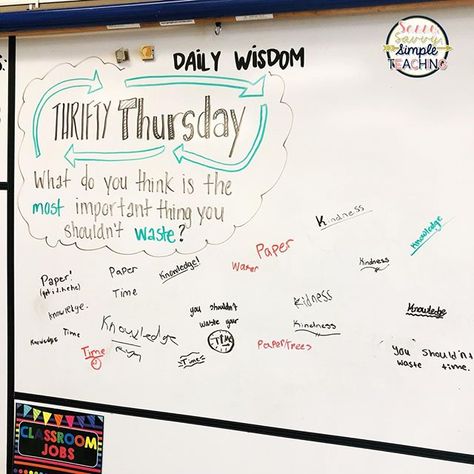 Daily Wisdom
Sell
Savvy.
Simple
TEACHING
THRIFTY Thursday
What do you think is the
most important thing you
shouldn't waste?
Kindness
Knowledge
Paper
Water
Paper
Time
Knowledge!
Kindness
Paper!
knowledge.
you shouldn't
waste your
Time
Kidness
Kindness
Knowledge
Knowledge
Time
Knowledge
Time
Time
Paper/trees
You shouldn't
waste time.
CLASSROOM
JOBS